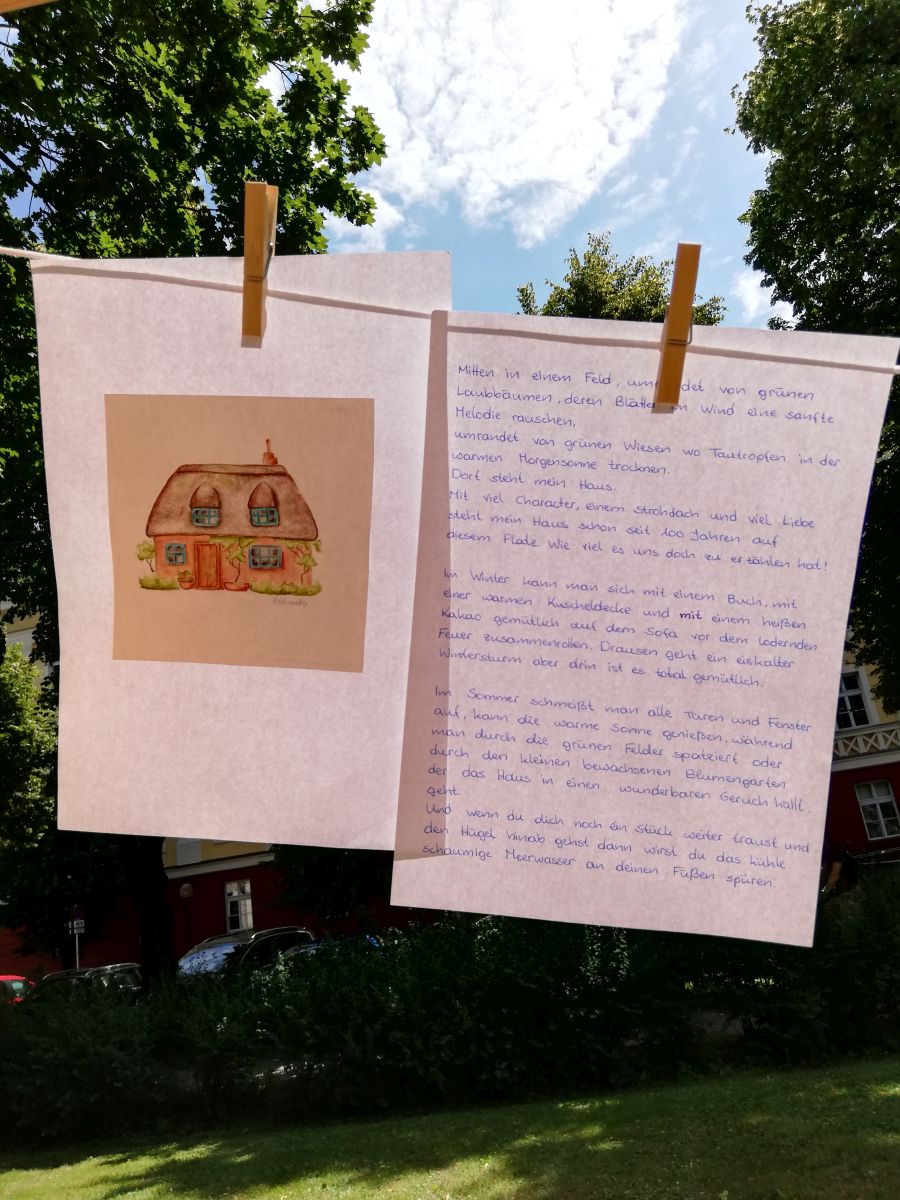 Mitten in einem Feld, von grünen
Laubbäumen, deren Blätter im Wind eine sanfte
Melodie rauschen,
umrandet von grünen Wiesen wo Tautropfen in der
warmen Morgensonne trocknen.
Dort steht mein Haus.
Mit viel Character, einem Strohdach und viel Liebe
steht mein Haus schon seit 100 Jahren auf
diesem Platz. Wie viel es uns doch zu erzählen hat!
Im Winter kann man sich mit einem Buch, mit
einer warmen Kuscheldecke und mit einem heißen
Kakao gemütlich auf dem Sofa vor dem lodernden
Feuer zusammenrollen. Drausen geht ein eiskalter
Wintersturm aber drin ist es total gemütlich.
Im Sommer schmeißt man alle Türen und Fenster
auf, kann die warme Sonne genießen, während
man durch die grünen Felder spatziert oder
durch den kleinen bewachsenen Blumengarten
der das Haus in einen wunderbaren Geruch hüllt.
geht.
Und wenn du dich noch ein Stück weiter traust und
den Hügel hinab gehst dann wirst du das kühle
schaumige Meerwasser an deinen Füßen spüren.